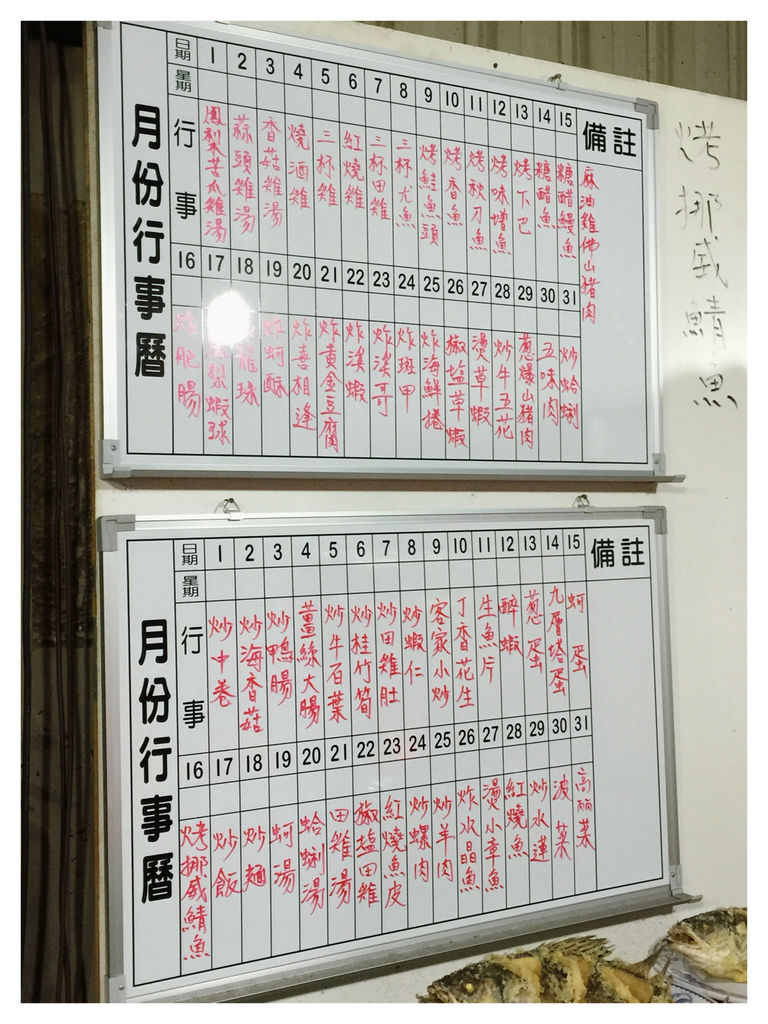 月份行事曆
日期 1 2 3 4 5 6 7 8 9 10 11 12 13 14 15 備註
星期
行事
鳳梨苦瓜雞湯
蒜頭雞湯
香菇雞湯
燒酒雞
三杯雞
紅燒雞
三杯田雞
三杯尤魚
烤鮭魚頭
烤香魚
烤秋刀魚
烤味增魚
烤下巴
糖醋魚
糖醋鰻魚
麻油雞佛山豬肉
16 17 18 19 20 21 22 23 24 25 26 27 28 29 30 31
炸肥腸
鳳梨蝦球
龍珠
炸蚵酥
炸喜相逢
炸黃金豆腐
炸溪蝦
炸溪哥
炸斑甲
炸海鮮捲
椒盐草蝦
燙草蝦
炒牛五花
蔥爆山豬肉
五味肉
炒蛤蜊
烤挪威鯖魚
月份行事曆
日期 1 2 3 4 5 6 7 8 9 10 11 12 13 14 15 備註
星期
行事
炒中卷
炒海香菇
炒鴨腸
薑絲大腸
炒牛石葉
炒桂竹筍
炒田雞肚
炒蝦仁
客家小炒
丁香花生
生魚片
醉蝦
蔥蛋
九層塔蛋
蚵蛋
16 17 18 19 20 21 22 23 24 25 26 27 28 29 30 31
烤挪威鯖魚
炒飯
炒麵
蚵湯
蛤蜊湯
田雞湯
椒盐田雞
紅燒魚皮
炒螺肉
炒羊肉
炸水晶魚
燙小章魚
紅燒魚
炒水蓮
波菜
高丽菜